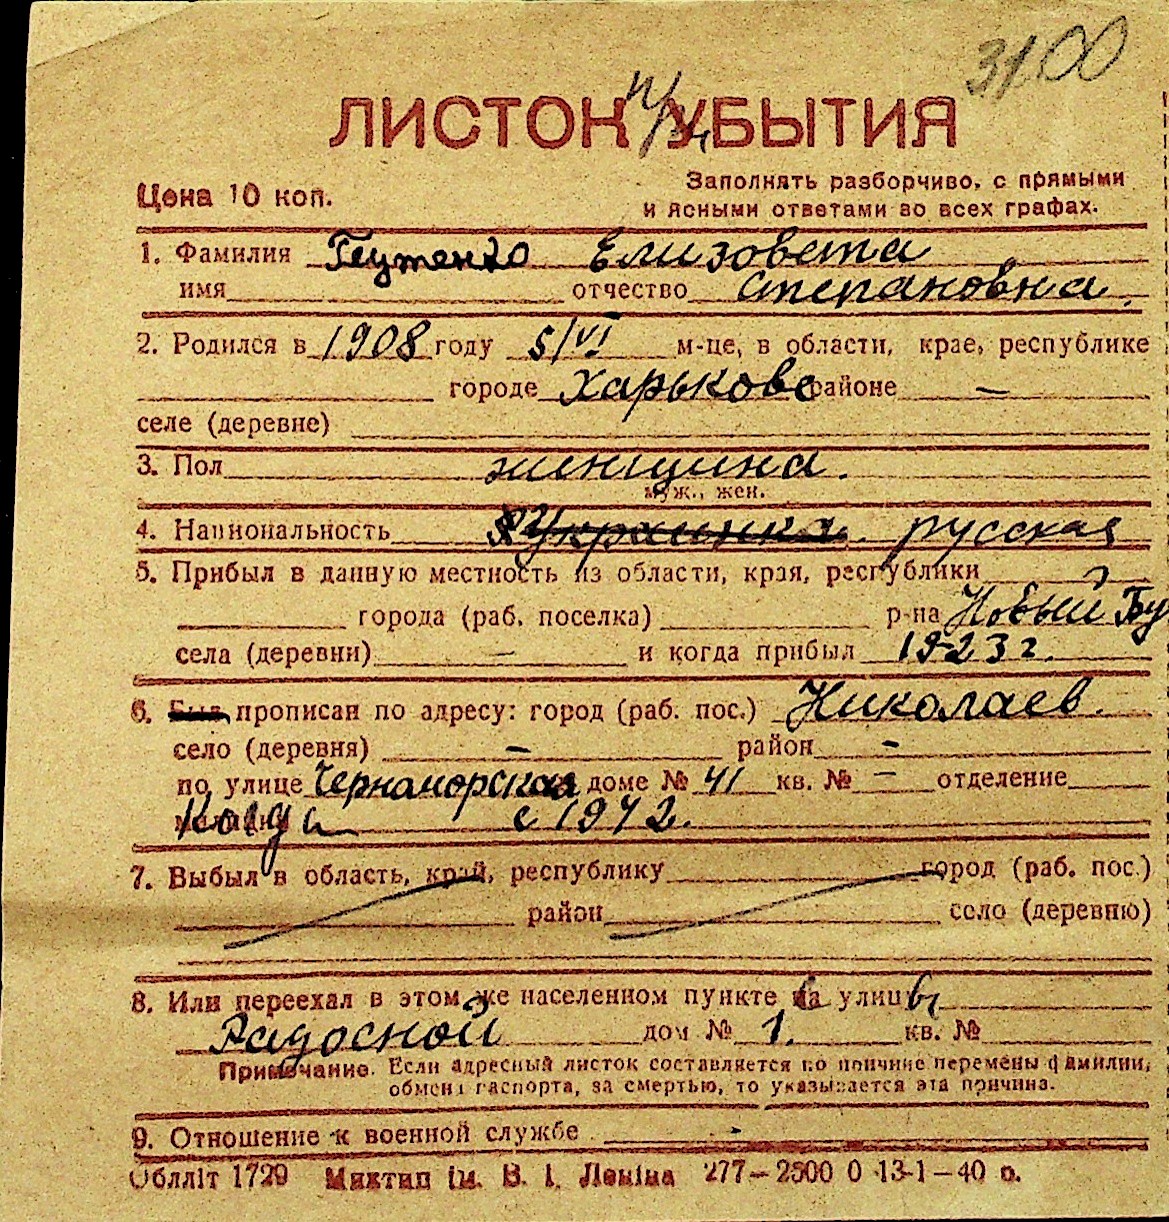 3100
ЛИСТОК УБЫТИЯ
Цена 10 коп.
Заполнять разборчиво, с прямыми
и ясными ответами во всех графах.
1. Фамилия Геутенко Елизовета
имя отчество Степановна.
2. Родился в 1908 году 5/VI м-це, в области, крае, республике
городе Харькове районе —
селе (деревне)
3. Пол женщина.
муж., жен.
4. Национальность Украинка. русская
5. Прибыл в данную местность из области, края, республики
города (раб. поселка) р-на Новый Бу
села (деревни) — и когда прибыл 1923 г.
6. Был прописан по адресу: город (раб. пос.) Николаев.
село (деревня) — район —
по улице Черноморская доме № 41 кв. № — отделение
милиции с 1942.
7. Выбыл в область, край, республику город (раб. пос.)
район село (деревню)
8. Или переехал в этом же населенном пункте на улицу
Радосной дом № 1. кв. №
Примечание. Если адресный листок составляется по причине перемены фамилии,
обмена паспорта, за смертью, то указывается эта причина.
9. Отношение к военной службе -
Обліт 1729 Миктип ім. В. І. Леніна 277—2500 0 13-1—40 р.